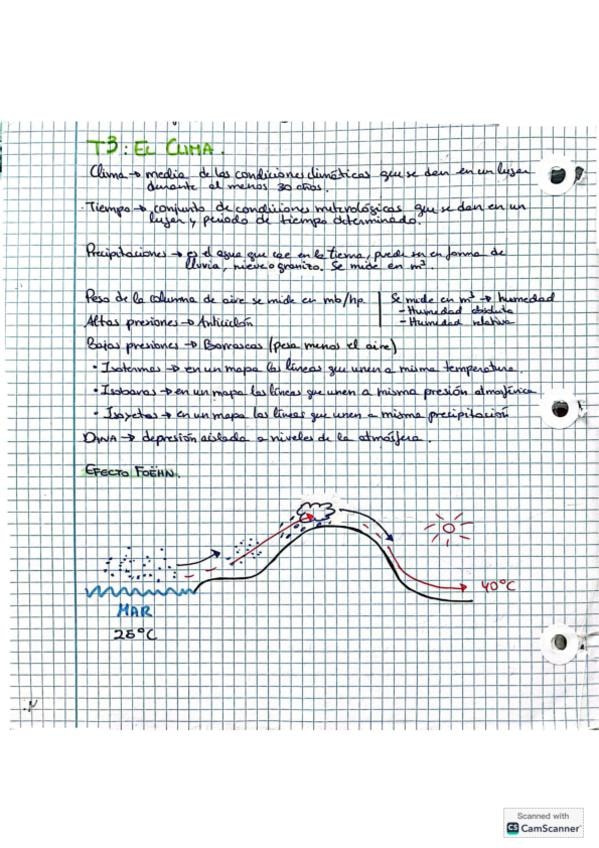 T3: EL CLIMA.
Clima → media de las condiciones climáticas que se dan en un lugar
durante al menos 30 años.
· Tiempo → conjunto de condiciones metrológicas que se dan en un
lugar y periodo de tiempo determinado.
Precipitaciones → es el agua que cae en la tierra, puede ser en forma de
lluvia, nieve o granizo. Se mide en m³.
Peso de la columna de aire se mide en mb/hp
Altas presiones → Anticiclón
Se mide en m³ → humedad
- Humedad absoluta
- Humedad relativa
Bajas presiones → Borrascas (pesa menos el aire)
• Isotermas → en un mapa las líneas que unen a misma temperatura.
• Isobaras → en un mapa las líneas que unen a misma presión atmosférica.
• Isoyetas → en un mapa las líneas que unen a misma precipitación
DANA → depresión aislada a niveles de la atmósfera.
EFECTO FOËHN.
40°C
MAR
25°C
Scanned with
CS CamScanner